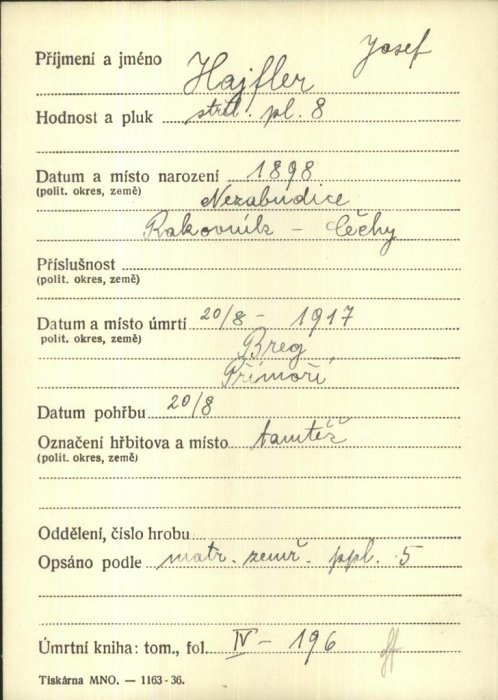 Příjmení a jméno Hajfler Josef
Hodnost a pluk střl. pl. 8
Datum a místo narození 1898
(polit. okres, země)
Nezabudice
Rakovník - Čechy
Příslušnost
(polit. okres, země)
Datum a místo úmrtí 20/8 - 1917
polit. okres, země)
Breg
Přímoří
Datum pohřbu 20/8
Označení hřbitova a místo tamtéž
(polit. okres, země)
Oddělení, číslo hrobu
Opsáno podle matr. zemř. ppl. 5
Úmrtní kniha: tom., fol. IV - 196
Tiskárna MNO. — 1163-36.